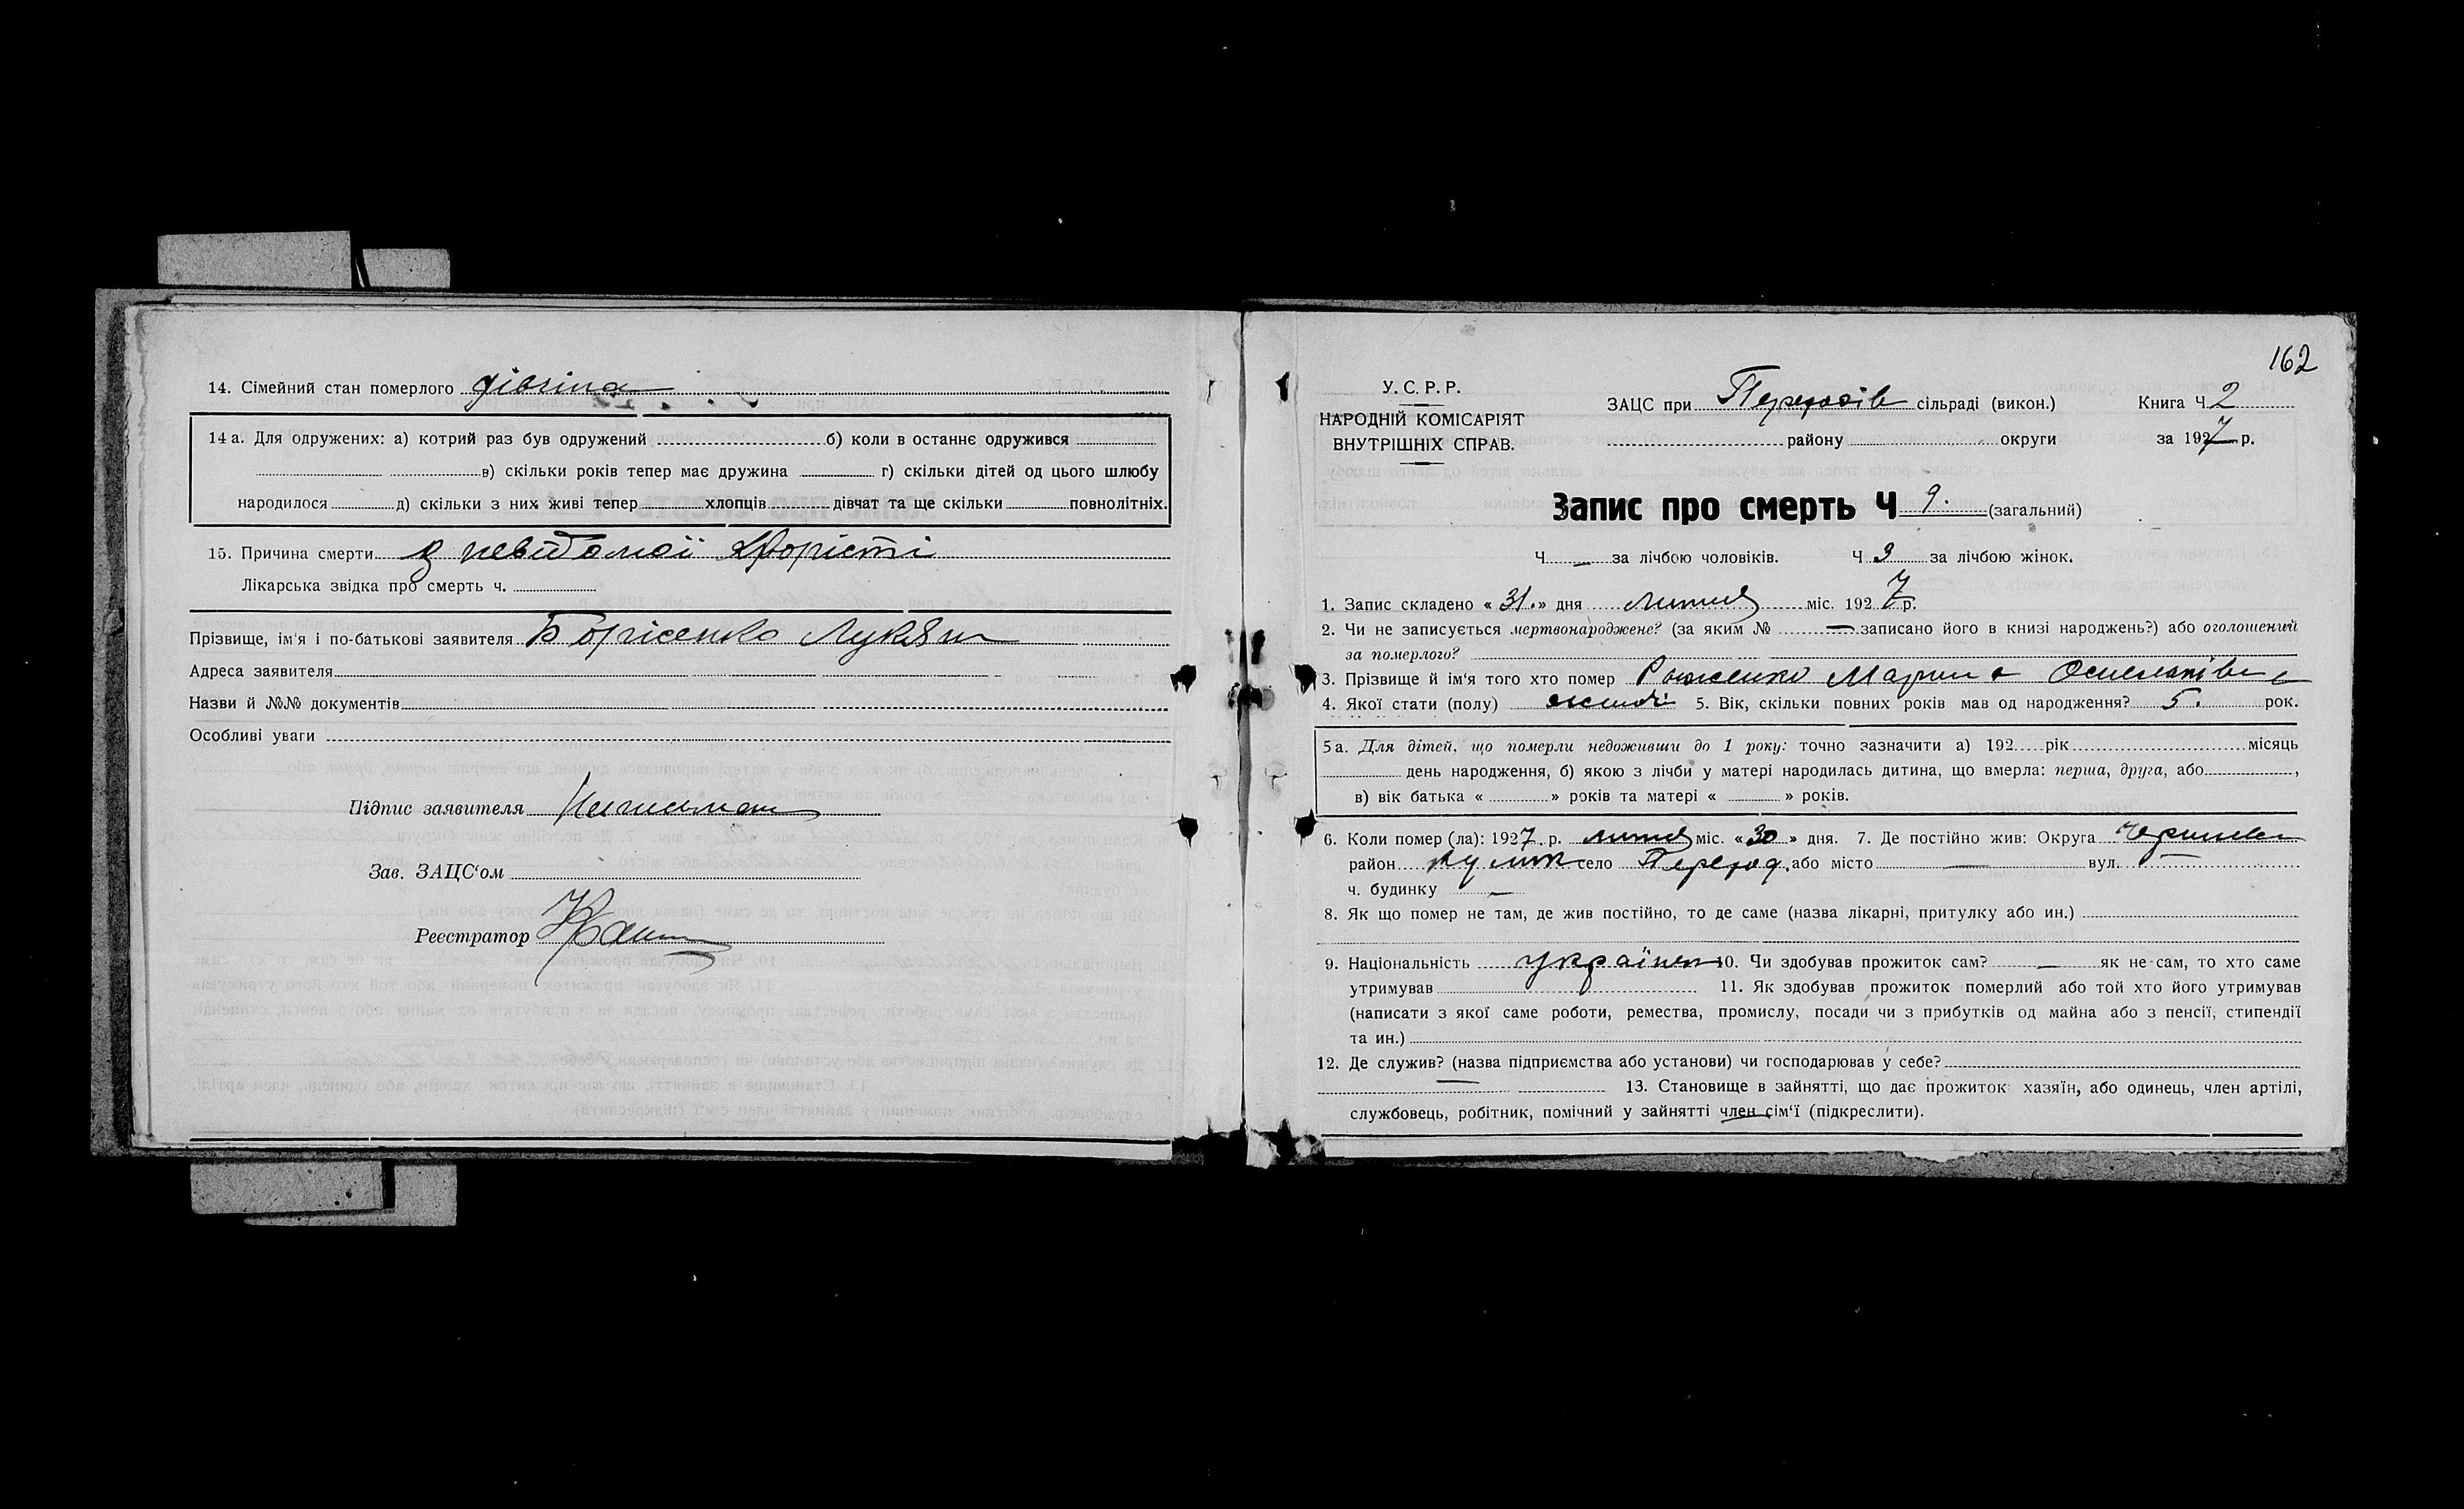 14. Сімейний стан померлого дівчина
14 а. Для одружених: а) котрий раз був одружений б) коли в останнє одружився
в) скільки років тепер має дружина г) скільки дітей од цього шлюбу
народилося д) скільки з них живі тепер хлопців дівчат та ще скільки повнолітніх.
15. Причина смерти з невідомої
Лікарська звідка про смерть ч.
Прізвище, ім'я і по-батькові заявителя Борисенко Лукян
Адреса заявителя
Назви й №№ документів
Особливі уваги
Підпис заявителя
Зав. ЗАЦС'ом
Реєстратор
162
У. С. Р. Р.
НАРОДНІЙ КОМІСАРІЯТ
ВНУТРІШНІХ СПРАВ.
ЗАЦС при сільраді (викон.) Книга Ч 2
району округи за 1927 р.
Запис про смерть Ч 9. (загальний)
Ч — за лічбою чоловіків. Ч 3 за лічбою жінок.
1. Запис складено « 31. » дня міс. 1927 р.
2. Чи не записується мертвонароджене? (за яким № — записано його в книзі народжень?) або оголошений
за померлого?
3. Прізвище й ім'я того хто помер Марина
4. Якої стати (полу) 5. Вік, скільки повних років мав од народження? 5. рок.
5 а. Для дітей, що померли недоживши до 1 року: точно зазначити а) 192 рік місяць
день народження, б) якою з лічби у матері народилась дитина, що вмерла: перша, друга, або ,
в) вік батька « » років та матері « » років.
6. Коли помер (ла): 1927. р. міс. «30» дня. 7. Де постійно жив: Округа
район село або місто — вул. —
ч. будинку —
8. Як що помер не там, де жив постійно, то де саме (назва лікарні, притулку або ин.)
9. Національність українка 10. Чи здобував прожиток сам? — як не сам, то хто саме
утримував 11. Як здобував прожиток померлий або той хто його утримував
(написати з якої саме роботи, ремества, промислу, посади чи з прибутків од майна або з пенсії, стипендії
та ин.)
12. Де служив? (назва підприємства або установи) чи господарював у себе?
— 13. Становище в зайнятті, що дає прожиток: хазяїн, або одинець, член артілі,
службовець, робітник, помічний у зайнятті член сім'ї (підкреслити).